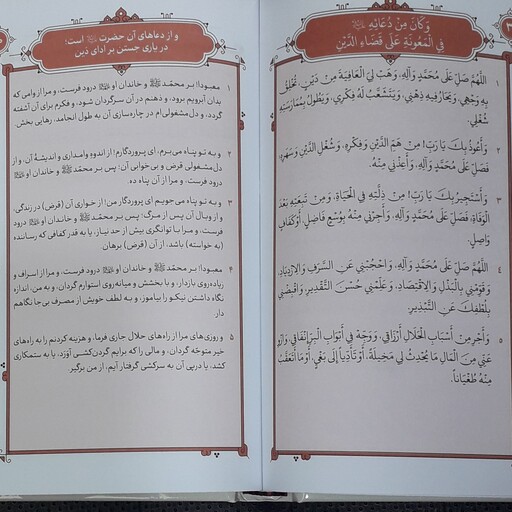 وَكَانَ مِنْ دُعَائِهِ
فِي الْمَعُونَةِ عَلَى قَضَاءِ الدَّيْنِ
١ اللَّهُمَّ صَلِّ عَلَى مُحَمَّدٍ وَآلِهِ، وَهَبْ لِيَ الْعَافِيَةَ مِنْ دَيْنٍ تُخْلِقُ
بِهِ وَجْهِي، وَيَحَارُ فِيهِ ذِهْنِي، وَيَتَشَعَّبُ لَهُ فِكْرِي، وَيَطُولُ بِمُمَارَسَتِهِ
شُغْلِي.
٢ وَأَعُوذُ بِكَ يَا رَبِّ! مِنْ هَمِّ الدَّيْنِ وَفِكْرِهِ، وَشُغْلِ الدَّيْنِ وَسَهَرِهِ،
فَصَلِّ عَلَى مُحَمَّدٍ وَآلِهِ، وَأَعِذْنِي مِنْهُ.
٣ وَأَسْتَجِيرُ بِكَ يَا رَبِّ! مِنْ ذِلَّتِهِ فِي الْحَيَاةِ، وَمِنْ تَبِعَتِهِ بَعْدَ
الْوَفَاةِ، فَصَلِّ عَلَى مُحَمَّدٍ وَآلِهِ، وَأَجِرْنِي مِنْهُ بِوُسْعٍ فَاضِلٍ، أَوْ كَفَافٍ
وَاصِلٍ.
٤ اللَّهُمَّ صَلِّ عَلَى مُحَمَّدٍ وَآلِهِ، وَاحْجُبْنِي عَنِ السَّرَفِ وَالِازْدِيَادِ،
وَقَوِّمْنِي بِالْبَذْلِ وَالِاقْتِصَادِ، وَعَلِّمْنِي حُسْنَ التَّقْدِيرِ، وَاقْبِضْنِي
بِلُطْفِكَ عَنِ التَّبْذِيرِ.
٥ وَأَجْرِ مِنْ أَسْبَابِ الْحَلَالِ أَرْزَاقِي، وَوَجِّهْ فِي أَبْوَابِ الْبِرِّ إِنْفَاقِي، وَازْوِ
عَنِّي مِنَ الْمَالِ مَا يُحْدِثُ لِي مَخِيلَةً، أَوْ تَأَدِّيًا إِلَى بَغْيٍ، أَوْ مَا أَتَعَقَّبُ
مِنْهُ طُغْيَانًا.
و از دعاهای آن حضرت است؛
در یاری جستن بر ادای دَین
١ معبودا! بر محمّد و خاندان او درود فرست، و مرا از وامی که
بدان آبرویم برود، و ذهنم در آن سرگردان شود، و فکرم برای آن آشفته
گردد، و دل مشغولی‌ام در چاره‌سازی آن به طول انجامد، رهایی بخش.
٢ و به تو پناه می‌برم، ای پروردگارم! از اندوه وامداری و اندیشهٔ آن، و از
دل‌مشغولی قرض و بی‌خوابی آن؛ پس بر محمّد و خاندان او
درود فرست، و مرا از آن پناه ده.
٣ و به تو پناه می‌جویم ای پروردگار من؛ از خواری آن (قرض) در زندگی،
و از وبال آن پس از مرگ؛ پس بر محمّد و خاندان او درود
فرست، و مرا با توانگری بیش از حد نیاز، یا به قدر کفافی که رساننده
(به خواسته) باشد، از آن (قرض) برهان
۴ معبودا! بر محمّد و خاندان او درود فرست، و مرا از اسراف و
زیاده‌روی بازدار، و با بخشش و میانه‌روی استوارم گردان، و به من، اندازه
نگاه داشتن نیکو را بیاموز، و به لطف خویش از مصرف بی‌جا نگاهم
دار.
۵ و روزی‌های مرا از راه‌های حلال جاری فرما، و هزینه کردنم را به راه‌های
خیر متوجّه گردان، و مالی را که برایم گردن‌کشی آوَرَد، یا به ستمکاری
کشد، یا در پی آن به سرکشی گرفتار آیم، از من برگیر.